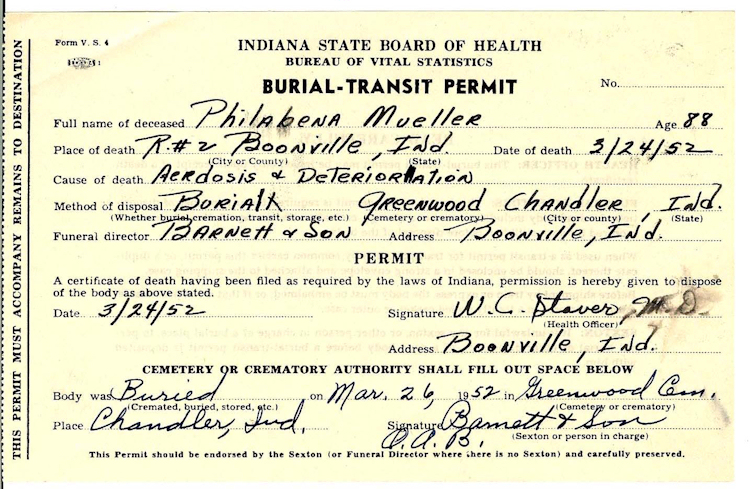 Form V. S. 4
INDIANA STATE BOARD OF HEALTH
BUREAU OF VITAL STATISTICS
BURIAL-TRANSIT PERMIT
No.
Full name of deceased Philabena Mueller Age 88
Place of death R.#2 Boonville, Ind. Date of death 3/24/52
(City or County) (State)
Cause of death Aerdosis & Deterioration
Method of disposal Burial Greenwood Chandler, Ind.
(Whether burial, cremation, transit, storage, etc.) (Cemetery or crematory) (City or county) (State)
Funeral director Barnett & Son Address Boonville, Ind.
PERMIT
A certificate of death having been filed as required by the laws of Indiana, permission is hereby given to dispose
of the body as above stated.
Date 3/24/52 Signature W. C. Stover, M.D.
(Health Officer)
Address Boonville, Ind.
CEMETERY OR CREMATORY AUTHORITY SHALL FILL OUT SPACE BELOW
Body was Buried on Mar. 26, 1952 in Greenwood Cem.
(Cremated, buried, stored, etc.) (Cemetery or crematory)
Place Chandler, Ind. Signature Barnett & Son
O.A.B. (Sexton or person in charge)
This Permit should be endorsed by the Sexton (or Funeral Director where there is no Sexton) and carefully preserved.
THIS PERMIT MUST ACCOMPANY REMAINS TO DESTINATION